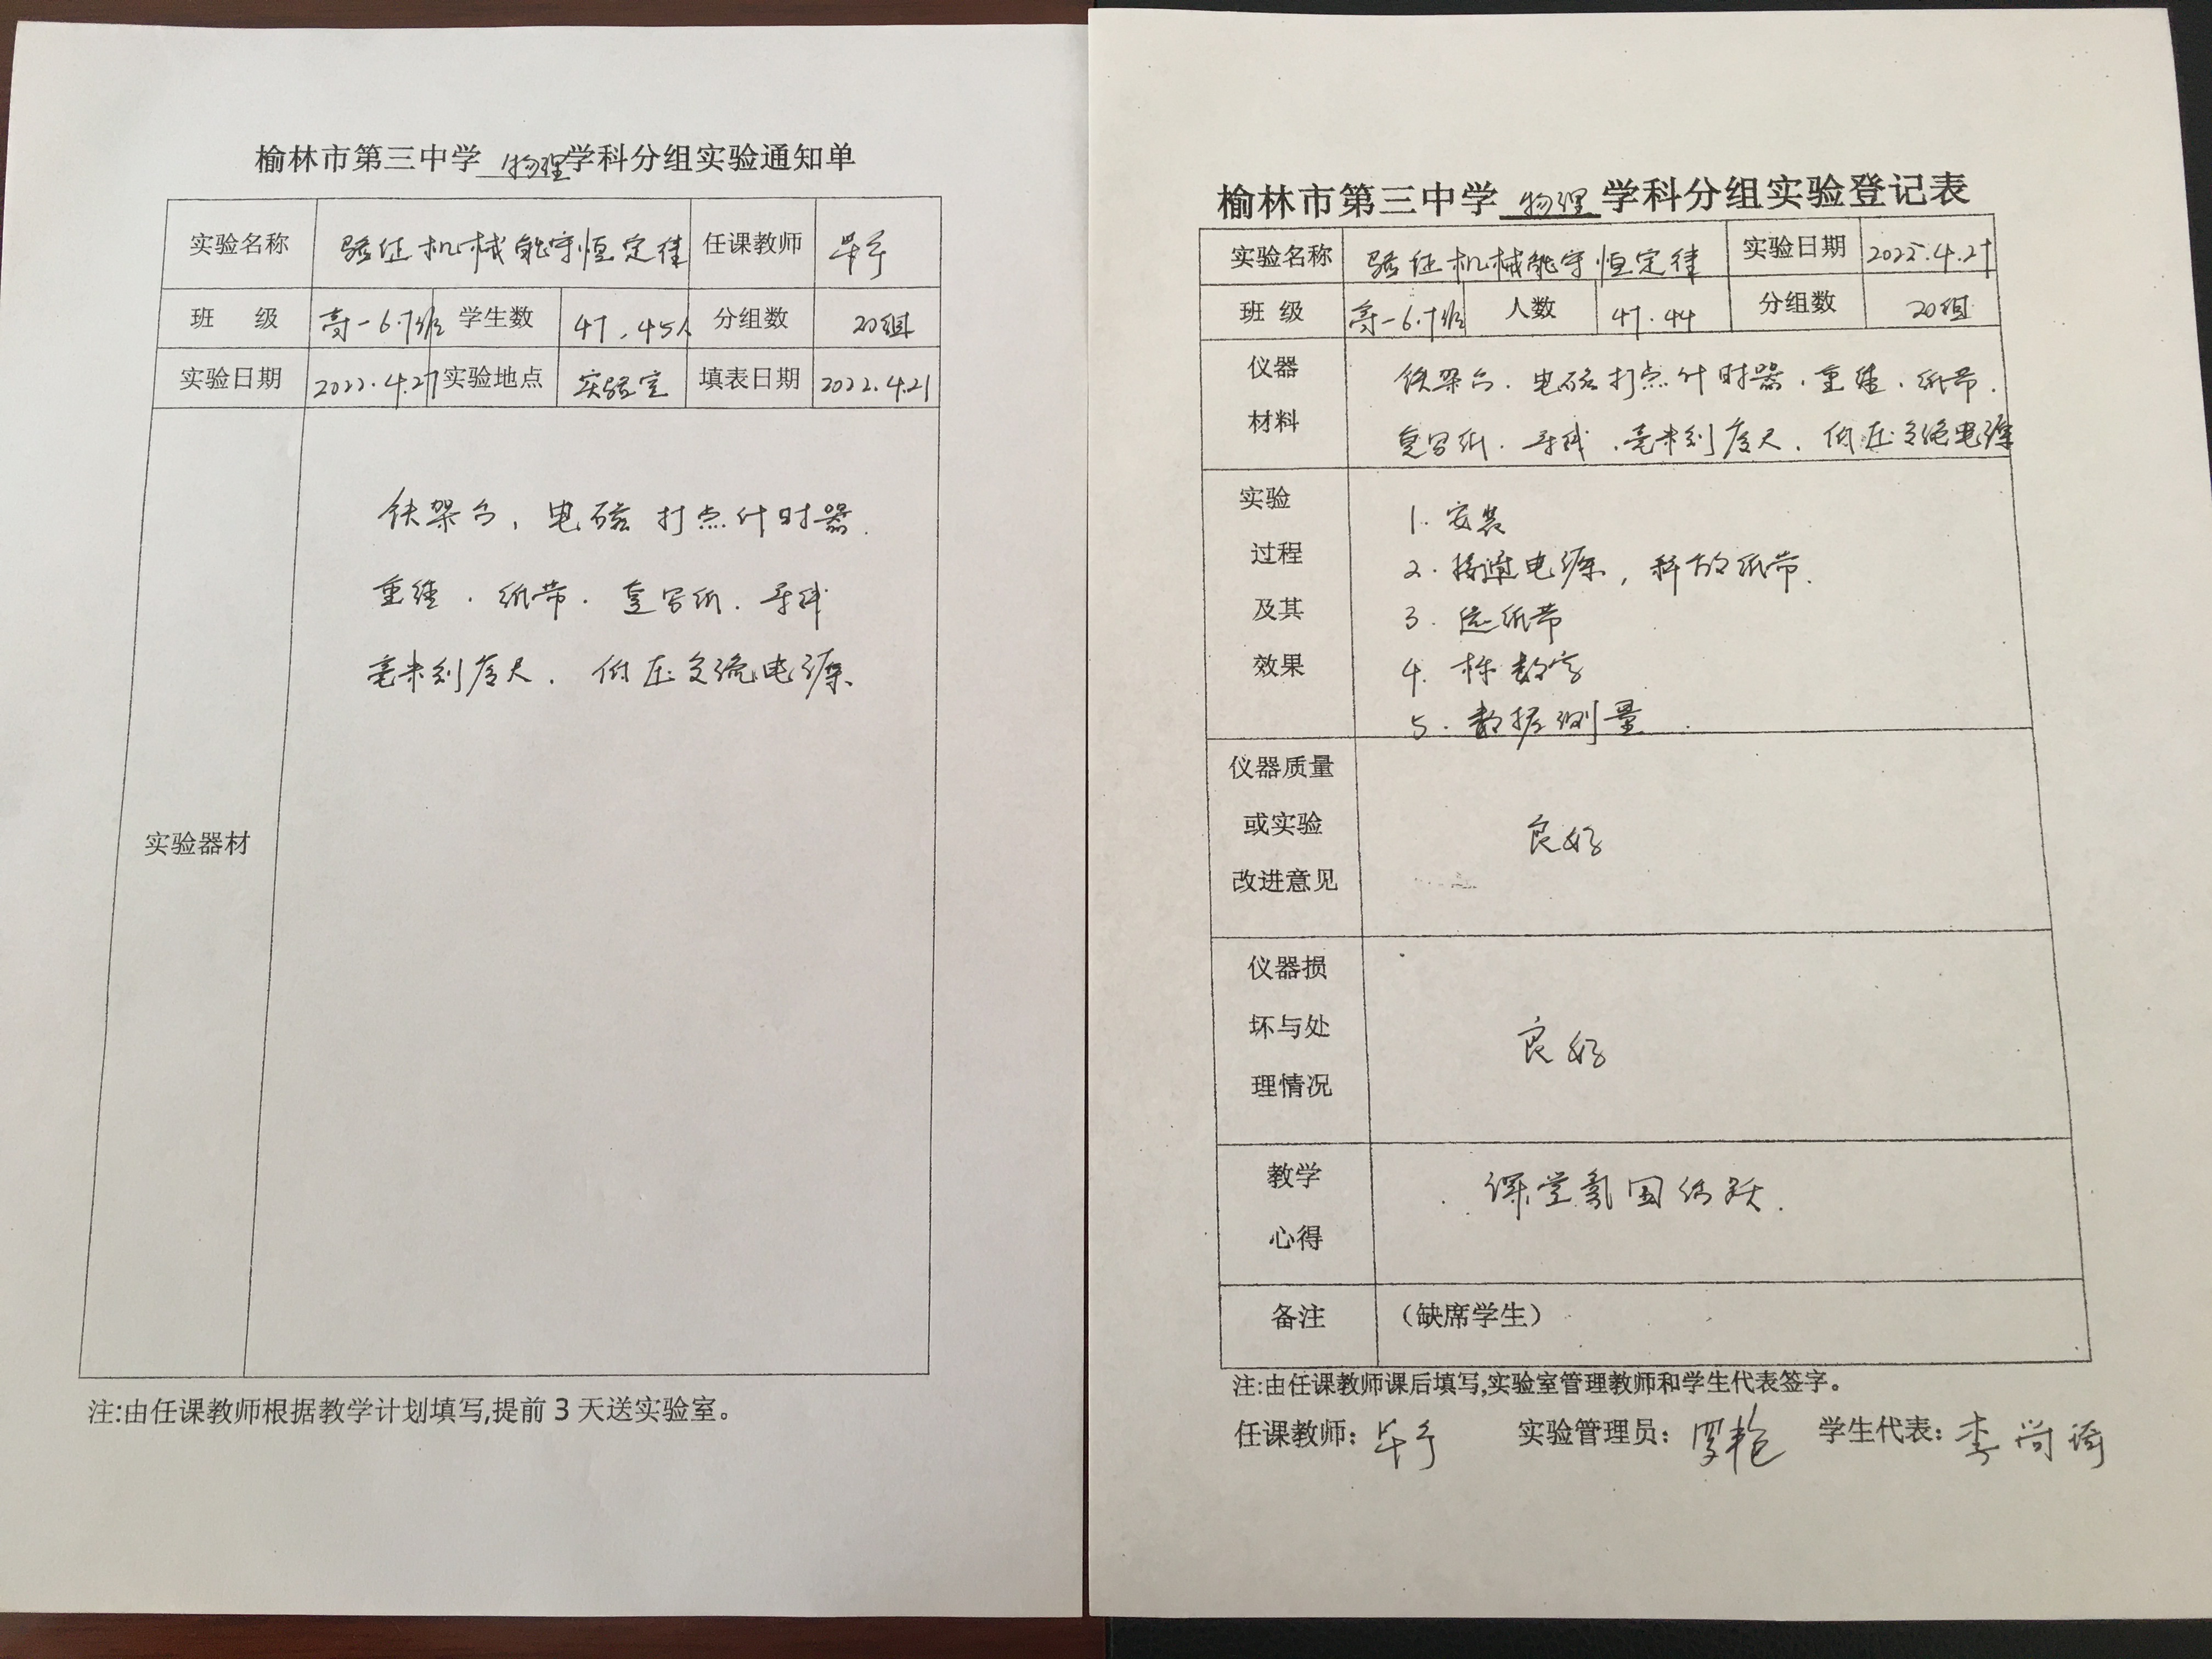 榆林市第三中学 物理 学科分组实验通知单
实验名称 验证机械能守恒定律 任课教师
班 级 高一6.7班 学生数 47,45人 分组数 20组
实验日期 2022.4.27 实验地点 实验室 填表日期 2022.4.21
实验器材
铁架台，电磁打点计时器.
重锤.纸带.复写纸.导线
毫米刻度尺.低压交流电源.
注:由任课教师根据教学计划填写,提前 3 天送实验室。
榆林市第三中学 物理 学科分组实验登记表
实验名称 验证机械能守恒定律 实验日期 2022.4.27
班 级 高一6.7班 人数 47.44 分组数 20组
仪器 铁架台.电磁打点计时器.重锤.纸带.
材料 复写纸.导线.毫米刻度尺.低压交流电源
实验 1.安装
过程 2.接通电源，释放纸带.
及其 3.选纸带
效果 4.标数字
5.数据测量.
仪器质量
或实验 良好
改进意见
仪器损
坏与处 良好
理情况
教学 课堂氛围活跃.
心得
备注 （缺席学生）
注:由任课教师课后填写,实验室管理教师和学生代表签字。
任课教师: 实验管理员: 学生代表: 李尚琦